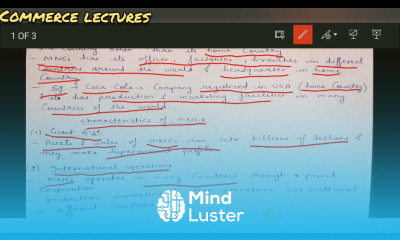 COMMERCE LECTURES
1 OF 3
one country other than its home country
- MNCs has its offices, factories, branches in different
countries around the world & headquarter in home
country.
- Eg → Coca Cola's Company registered in USA (home country)
but has production & marketing facilities in many
Countries of the world.
characteristics of MNCs
(1) Giant Size
- Assets & Sales of MNCs run into billions of dollars &
they make supernormal profits
2) International operations
- MNCs operates in many Countries through a parent
corporation
production, marketing operations are scattered
in different Countries
Mind
Luster